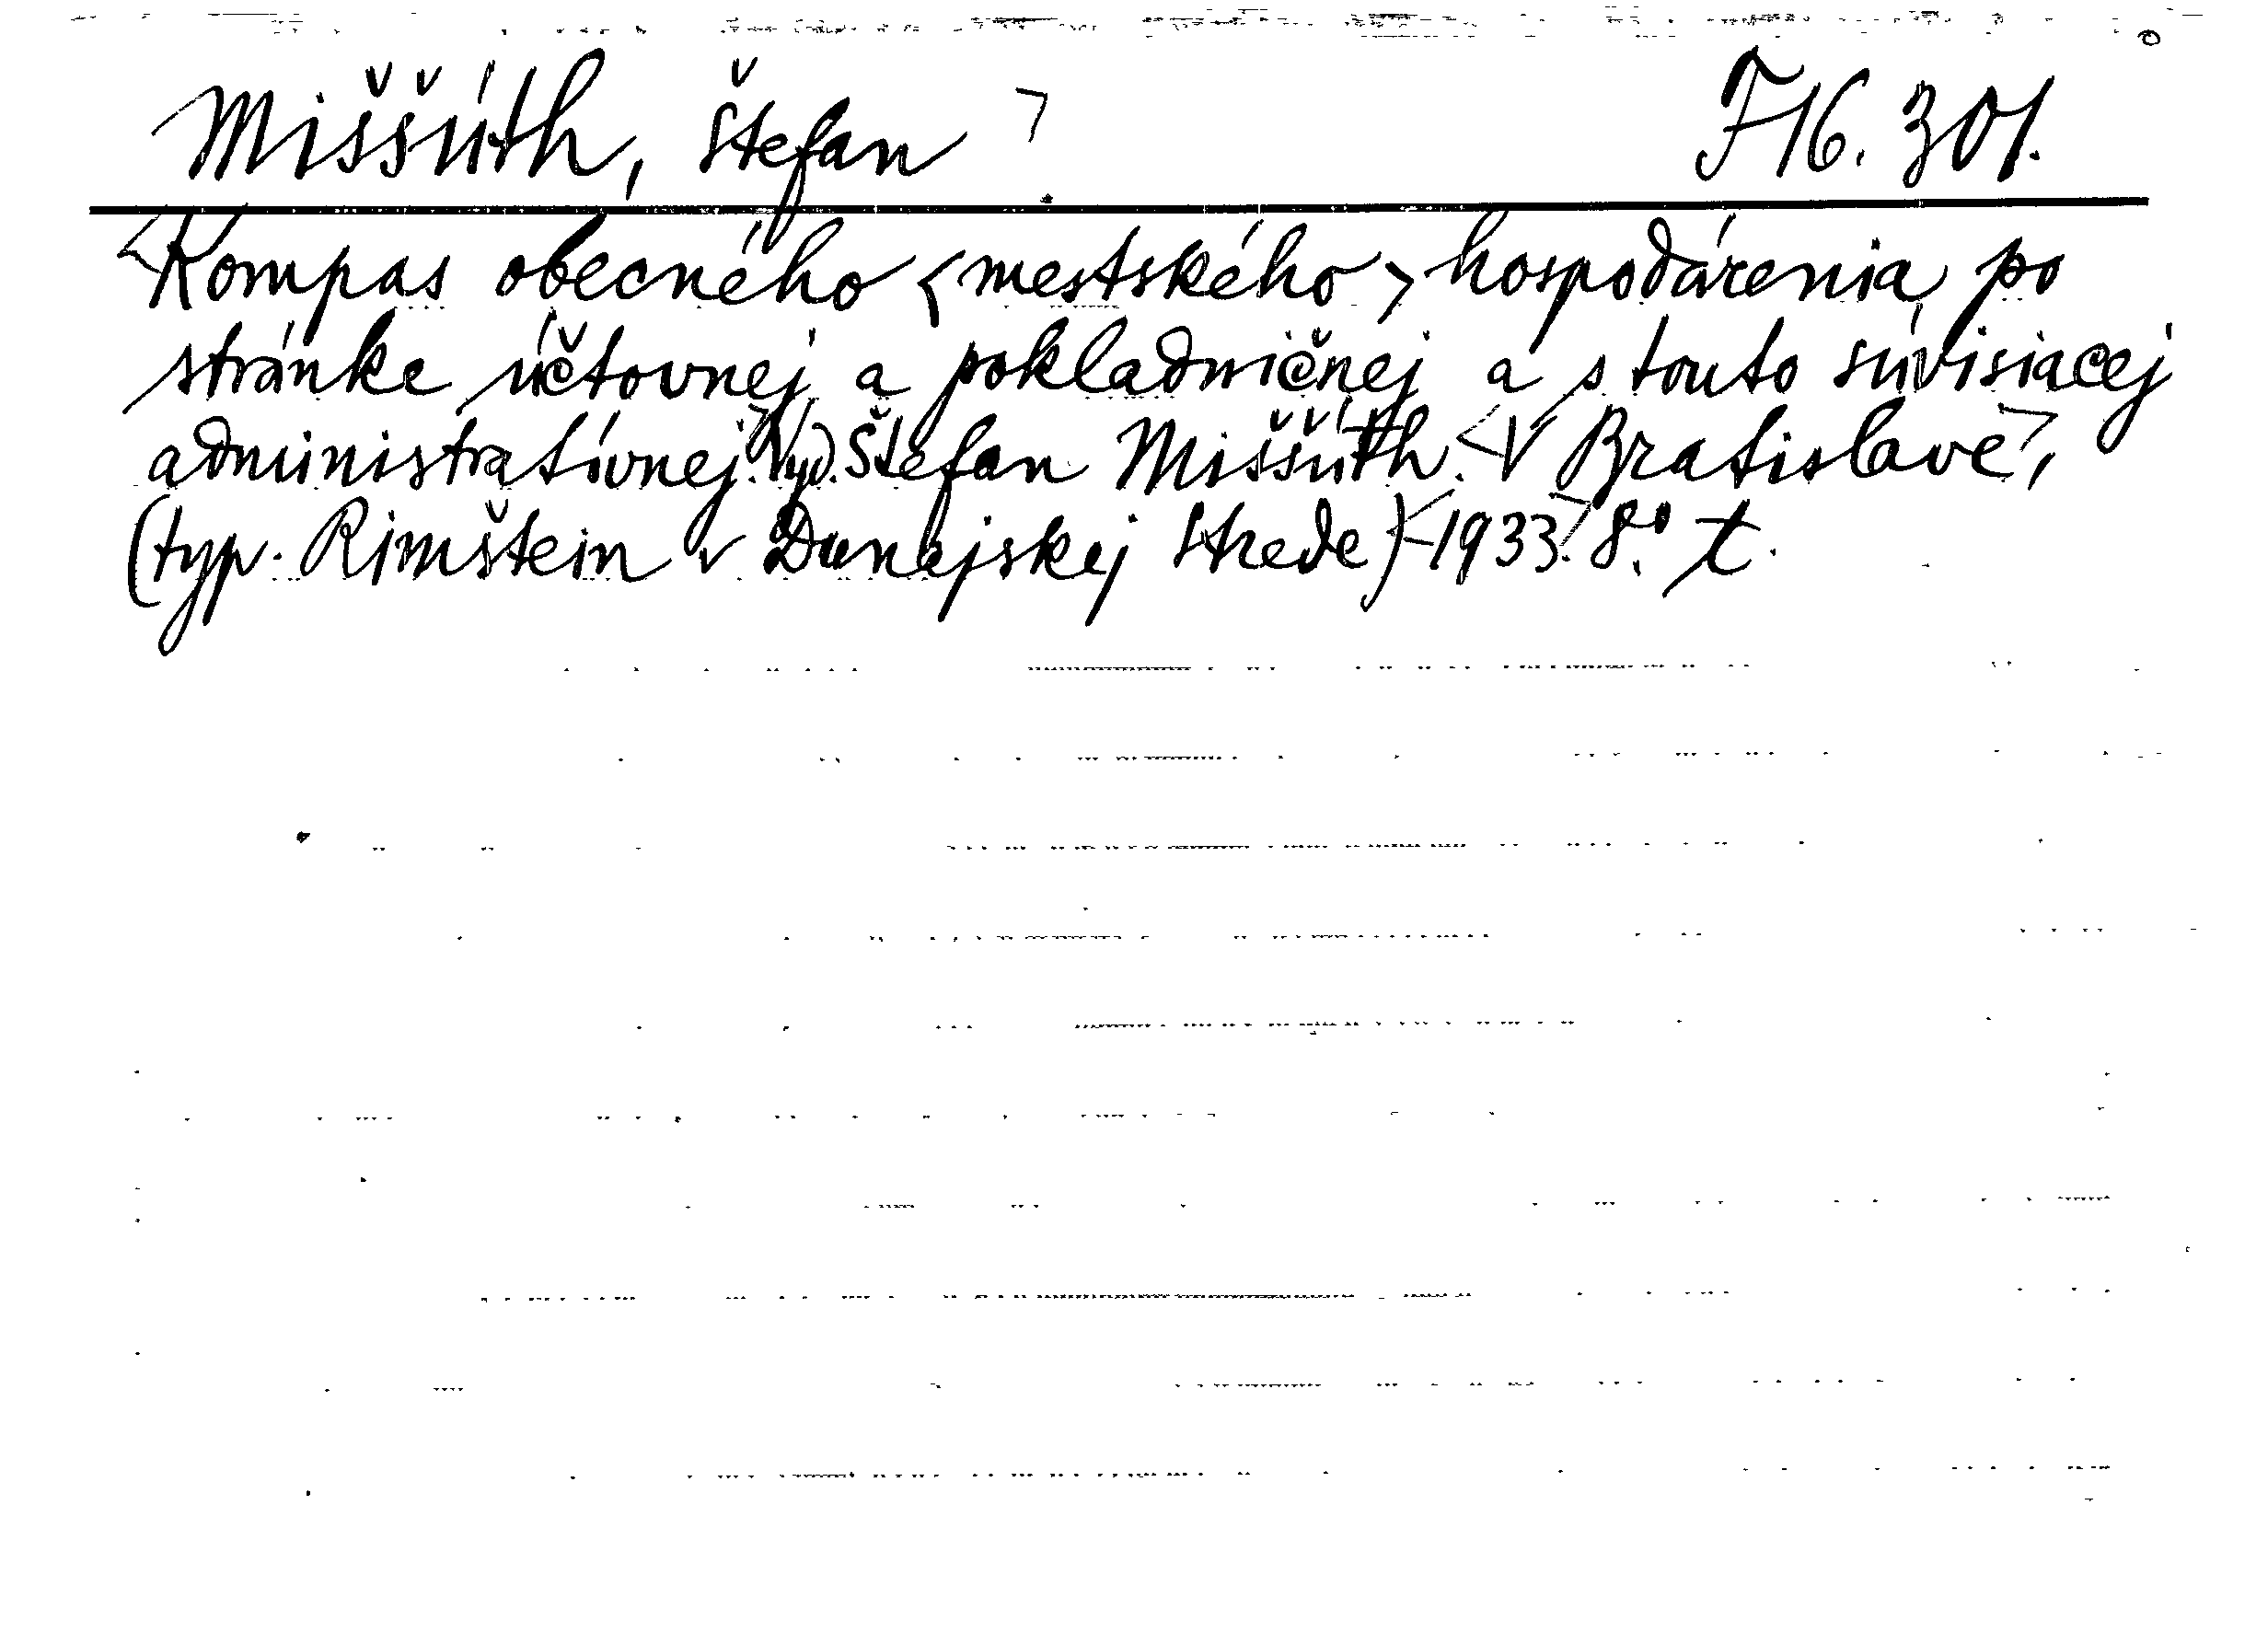 Miššúth, Štefan ⌝ F16.301.
<Kompas obecného <mestského> hospodárenia po
stránke účtovnej a pokladničnej a s touto súvisiacej
administratívnej.⌝ Vyd. Štefan Miššúth. <V Bratislave⌝,
(typ. Rimštein v Dunajskej Strede) <1933.⌝ 8°. t.